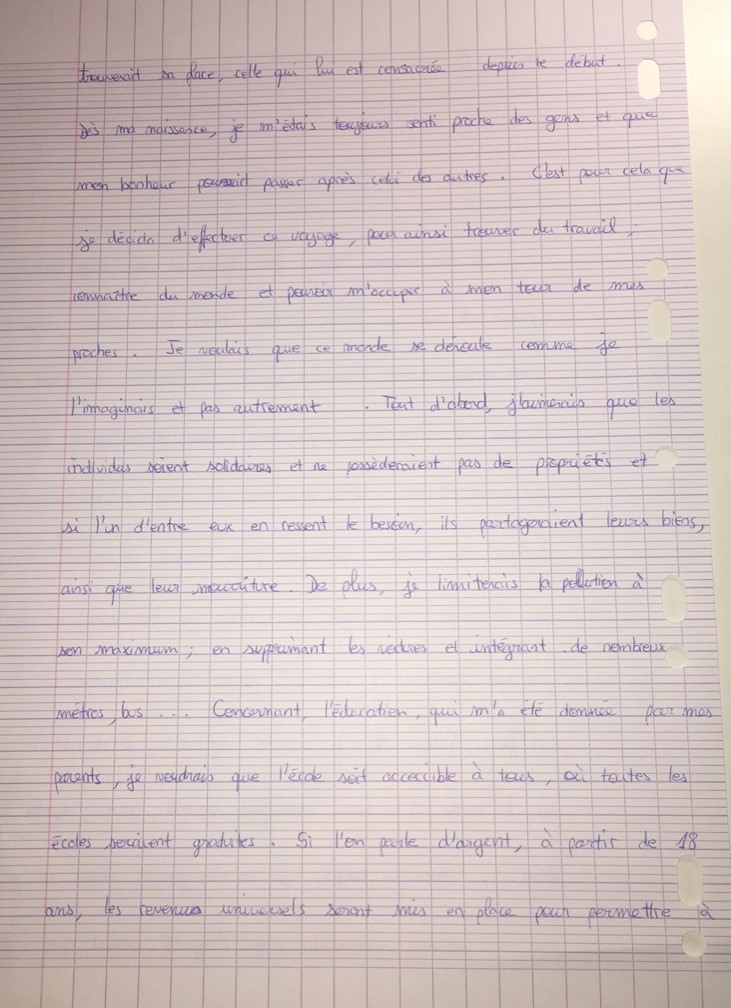 trouverait sa place, celle qui lui est consacrée depuis le début.
Dès ma naissance, je m'étais toujours senti proche des gens et que
mon bonheur pouvait passer après celui des autres. C'est pour cela que
je décida d'effectuer ce voyage, pour ainsi trouver du travail ;
connaître du monde et pouvoir m'occuper à mon tour de mes
proches. Je voulais que ce monde se déroule comme je
l'imaginais et pas autrement. Tout d'abord, j'aimerais que les
individus soient solidaires et ne possèderaient pas de propriétés et
si l'un d'entre eux en ressent le besoin, ils partageraient leurs biens,
ainsi que leur nourriture. De plus, je limiterais la pollution à
son maximum ; en supprimant les voitures et intégrant de nombreux
métros, bus ... Concernant, l'éducation, qui m'a été donnée par mes
parents, je voudrais que l'école soit accessible à tous, où toutes les
écoles seraient gratuites. Si l'on parle d'argent, à partir de 18
ans, les revenus universels seront mis en place pour permettre à